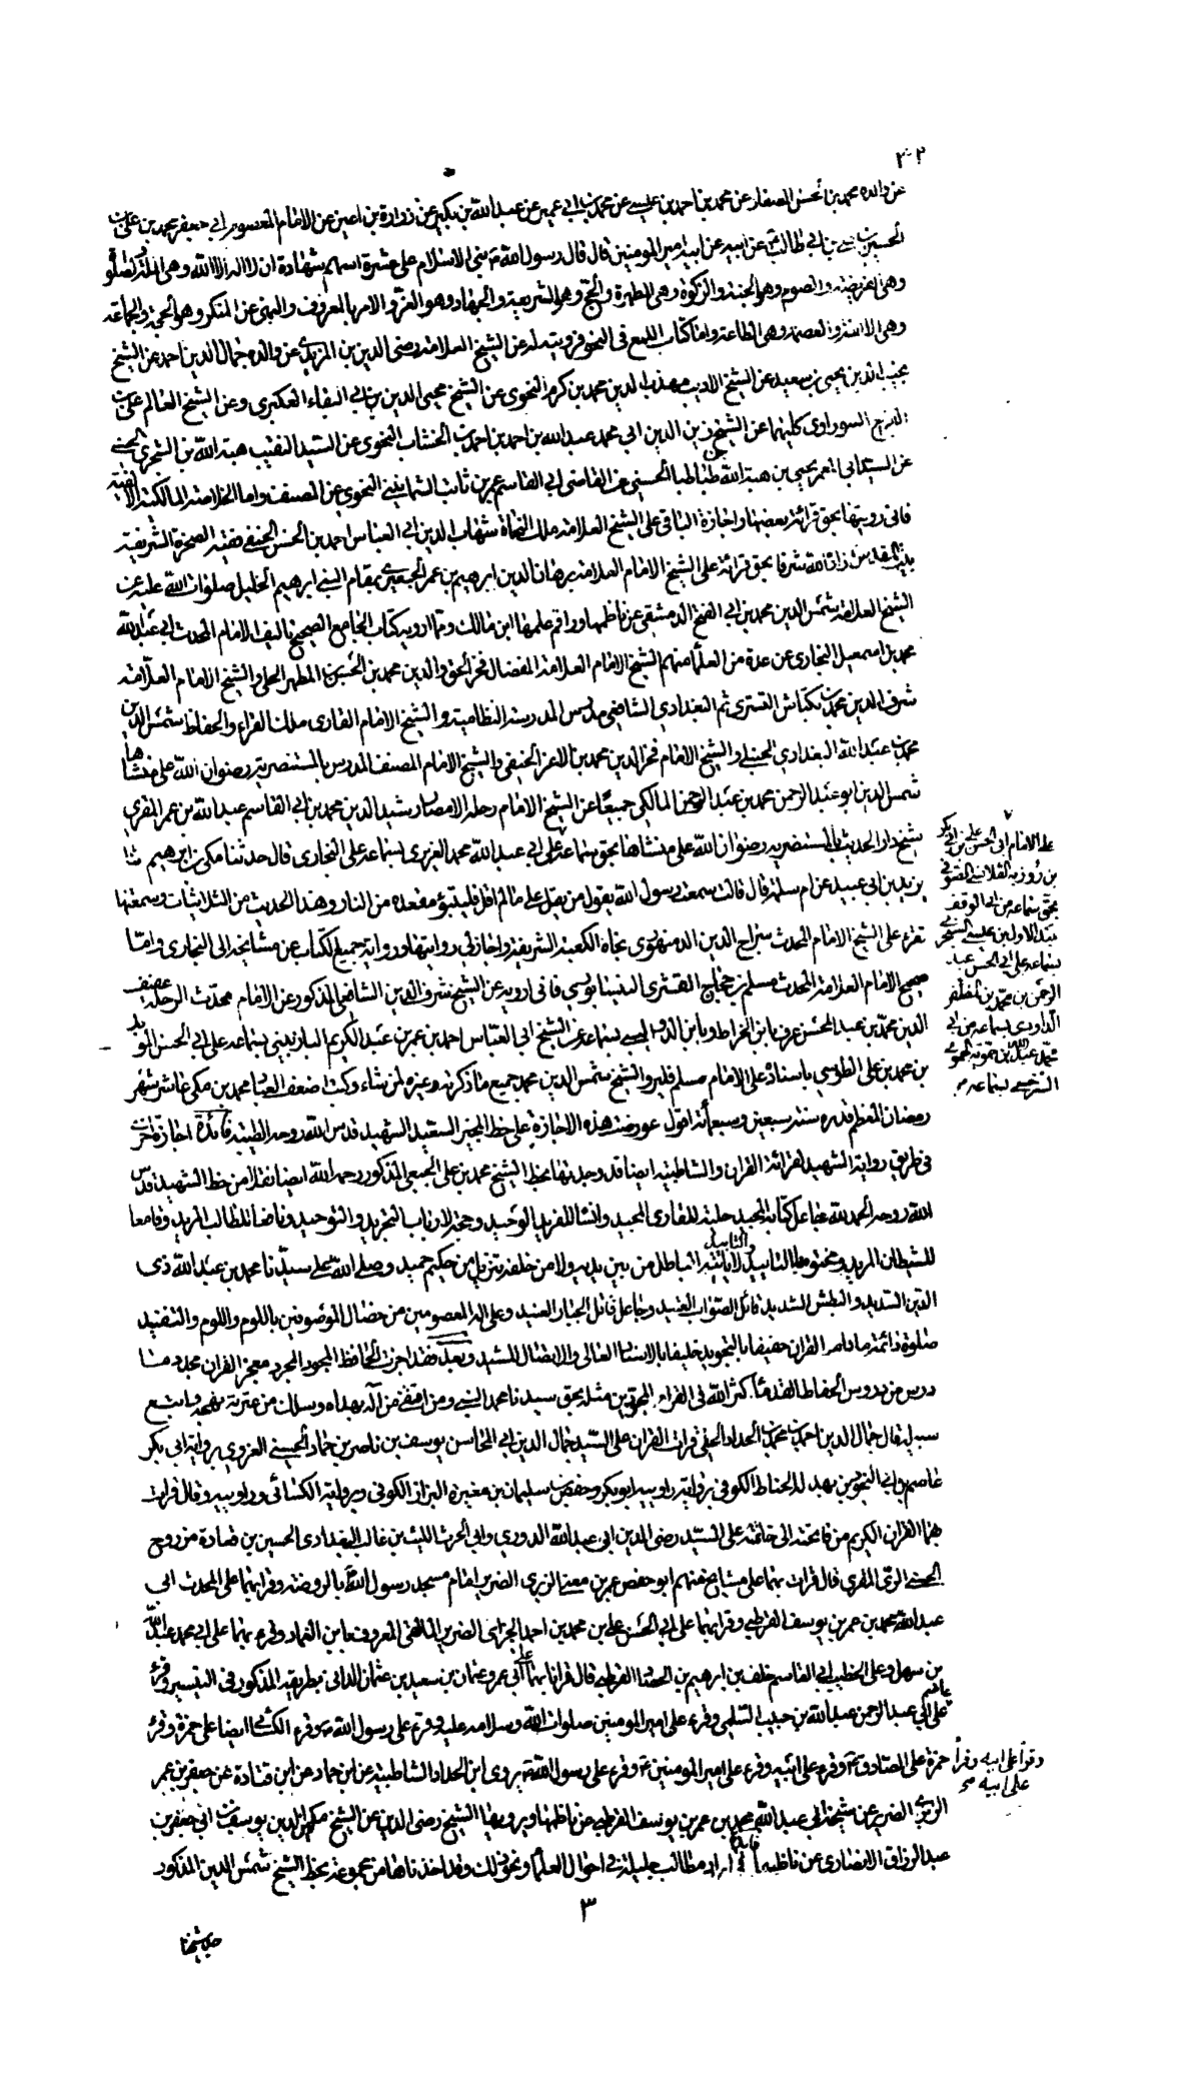 عن والده محمد بن الحسن الصفار عن محمد بن احمد بن علي عن محمد بن ابي عمير عن عبد الله بن بكير عن زرارة بن اعين عن الامام المعصوم ابي جعفر محمد بن علي بن
الحسين بن علي بن ابي طالب عن ابيه عن ابيه امير المومنين قال قال رسول الله بنى الاسلام على عشرة اسهم شهادة ان لا اله الا الله وهي الملة والصلوة
وهي الفريضة والصوم وهو الجنة والزكوة وهي المطهرة والحج وهو الشريعة والجهاد وهو العز والامر بالمعروف والنهي عن المنكر وهو الحجة والجماعة
وهي الالفة والعصمة وهي الطاعة واما كتاب اللمع في النحو فرويته له عن الشيخ العلامة رضي الدين بن المزيدي عن والده جمال الدين احمد عن الشيخ
نجيب الدين يحيى بن سعيد عن الشيخ الاديب مهذب الدين محمد بن كرم النحوي عن الشيخ محيي الدين بن ابي البقاء العكبري وعن الشيخ العالم علي بن
الفرج السوراوي كليهما عن الشيخ زين الدين ابي محمد عبد الله بن احمد بن احمد بن الخشاب النحوي عن السيد النقيب هبة الله بن الشجري الحسني
عن السيد ابي المعمر يحيى بن هبة الله طباطبا الحسني عن القاضي ابي القاسم عمر بن ثابت الثمانيني النحوي عن المصنف واما الخلاصة المالكية الالفية
فاني رويتها بحق قرائة بعضها واجازة الباقي على الشيخ العلامة ملك النحاة شهاب الدين ابي العباس احمد بن الحسن الحنفي فقيه الصخرة الشريفة
ببيت المقدس زاده الله شرفا بحق قرائة على الشيخ الامام العلامة برهان الدين ابرهيم بن عمر الجعبري بمقام النبي ابرهيم الخليل صلوات الله عليه عن
الشيخ العلامة شمس الدين محمد بن ابي الفتح الدمشقي عن ناظمها وراقم علمها ابن مالك ومما ارويه كتاب الجامع الصحيح تاليف الامام المحدث ابي عبد الله
محمد بن اسمعيل البخاري عن عدة من العلماء منهم الشيخ الامام العلامة المفضال فخر الحق والدين محمد بن الحسن المطهر الحلي والشيخ الامام العلامة
شرف الدين محمد بن بكتاش التستري ثم البغدادي الشافعي مدرس المدرسة النظامية والشيخ الامام القاري ملك القراء والحفاظ شمس الدين
محمد بن عبد الله البغدادي الحنبلي والشيخ الامام فخر الدين محمد بن الاعز الحنفي والشيخ الامام المصنف المدرس بالمستنصرية رضوان الله على منشاها
شمس الدين ابو عبد الرحمن محمد بن عبد الرحمن المالكي جميعا عن الشيخ الامام رحلة الامصار رشيد الدين محمد بن ابي القاسم عبد الله بن عمر المقري
شيخ دار الحديث بالمستنصرية رضوان الله على منشاها بحق سماعه على ابي عبد الله محمد العزيزي بسماعه على البخاري قال حدثنا مكي بن ابرهيم ثنا
يزيد بن ابي عبيد عن ام سلمة قال قالت سمعت رسول الله يقول من يقل علي ما لم اقل فليتبوء مقعده من النار وهذا الحديث من الثلاثيات وسمعتها
تقرء على الشيخ الامام المحدث سراج الدين الدمنهوري تجاه الكعبة الشريفة واجاز لي روايتها ورواية جميع الكتاب عن مشايخه الى البخاري واما
صحيح الامام العلامة المحدث مسلم بن حجاج القشيري النيسابوري فاني ارويه عن الشيخ شرف الدين الشافعي المذكور عن الامام محدث الرحلة عفيف
الدين محمد بن عبد المحسن عرف بابن الخراط وبابن الدواليبي بسماعه عن الشيخ ابي العباس احمد بن عمر بن عبد الكريم الباذبيني بسماعه على ابي الحسن المؤيد
بن محمد بن علي الطوسي باسناده على الامام مسلم فليرو الشيخ شمس الدين محمد جميع ما ذكرته وغيره لمن شاء وكتب اضعف العباد محمد بن مكي عاشر شهر
رمضان المعظم قدره سنة سبعين وسبعمأة اقول عورضت هذه الاجازة على خط المجيز السعيد الشهيد قدس الله روحه الطيبة فائدة اجازة اخرى
في طريق رواية الشهيد لقرائة القران والشاطبية ايضا قد وجدتها بخط الشيخ محمد بن علي الجبعي المذكور رحمه الله ايضا نقلا من خط الشهيد قدس
الله روحه الحمد لله جاعل كتابه المجيد حلية للقاري المجيد وانسا للفريد الوحيد وحجة لارباب التجريد والتوحيد وناضا للطالب المريد وقامعا
للشيطان المريد ومختوما بالتابيد والتاييد لا ياتيه الباطل من بين يديه ولا من خلفه تنزيل من حكيم حميد وصلى الله على سيدنا محمد بن عبد الله ذي
الدين السديد والبطش الشديد قائل الصواب العتيد وجاعل قاتل الجبار العنيد وعلى اله المعصومين من خصال الموصوفين باللوم واللوم والتفنيد
صلوة دائمة ما دام القران حفيفا بالتجويد خليفا بالاسناد العالي والاتصال للسديد وبعد فقد اجزت للحافظ المجود المجرد معجز القران مجدد ما
درس من دروس الحفاظ القدماء كثر الله في القراء المجودين مثله بحق سيدنا محمد النبي ومن اقتفى من آله بهداه وسلك من عترته نهجه واتبع
سبيله قال جمال الدين احمد بن محمد بن الحداد الحلي قرات القران على السيد جمال الدين ابي المحاسن يوسف بن ناصر بن حماد الحسيني الغروي برواية ابي بكر
عاصم بن ابي النجود بن بهدلة الحناط الكوفي برواية راوييه ابو بكر وحفص بن سليمان بن مغيرة البزاز الكوفي وبرواية الكسائي وراوييه وقال قرات
بهما القران الكريم من فاتحته الى خاتمته على السيد رضي الدين ابي عبد الله الدوري وابي الحرث الليث بن خالد البغدادي الحسين بن قتادة مزروع
الحسني المقري قال قرات بهما على مشايخ منهم ابو حفص عمر بن معن الزبري الضرير امام مسجد رسول الله بالروضة وقرا بهما على المحدث ابي
عبد الله محمد بن عمر بن يوسف القرطبي وقرا بهما على ابي الحسن علي بن محمد بن احمد الجذامي الضرير المالقي المعروف بابن الغماد وقرء بهما على ابي محمد عبد الله
بن سهل وعلى الخطيب ابي القاسم خلف بن ابرهيم بن القرطبي قال قرانا بهما على ابي عمرو عثمان بن سعيد بن عثمان الداني بطريقه المذكور في التيسير وقرأ
عاصم على ابي عبد الرحمن عبد الله بن حبيب السلمي وقرء على امير المومنين صلوات الله وسلامه عليه وقرء على رسول الله وقرء الكسائي ايضا على حمزة وقرء
حمزة على الصادق وقرء على ابيه وقرء على امير المومنين وقرء على رسول الله ويروي ابن الحداد الشاطبية عن ابن حماد عن ابن قتادة عن جعفر بن عمر
الزبري الضرير عن شيخه ابي عبد الله محمد بن عمر بن يوسف القرطبي عن ناظمها ويرويها الشيخ رضي الدين عن الشيخ مكين الدين يوسف بن ابي جعفر بن
عبد الرزاق الانصاري عن ناظمه فائدة في ايراد مطالب جليلة في احوال العلماء ونحو ذلك وقد اخذناها من مجموعة بخط الشيخ شمس الدين المذكور
٣
على الامام ابي الحسن علي بن ابي بكر
بن روزبه القلانسي الصوفي
بحق سماعه من ابي الوقت
عبد الاول بن عيسى السجزي
بسماعه على ابي الحسن عبد
الرحمن بن محمد بن المظفر
الداودي بسماعه من ابي
محمد عبد الله بن حمويه الحموي
السرخسي بسماعه من
وقرأ على ابيه وقرأ
على ابيه